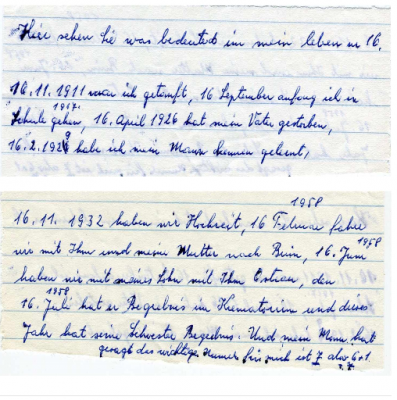 Hier sehen Sie was bedeutet im mein leben nr 16.
16.11.1911 war ich getauft, 16 September anfang ich in
1917.
Schule gehen, 16. April 1926 hat mein Vater gestorben,
16.2.1929 habe ich mein Mann kennen gelernt,
1958
16.11. 1932 haben wir Hochzeit, 16 Februar fahre
wir mit Ihm und meine Mutter nach Brün, 16. Juni
1958
haben wir mit meines Sohn mit Ihm Ostrau, den
1958
16. Juli hat er Begrebnis im Krematorium und dieses
Jahr hat seine Schwester Begrebnis. Und mein Mann hat
gesagt das wichtige numer für mich ist 7 also 6+1